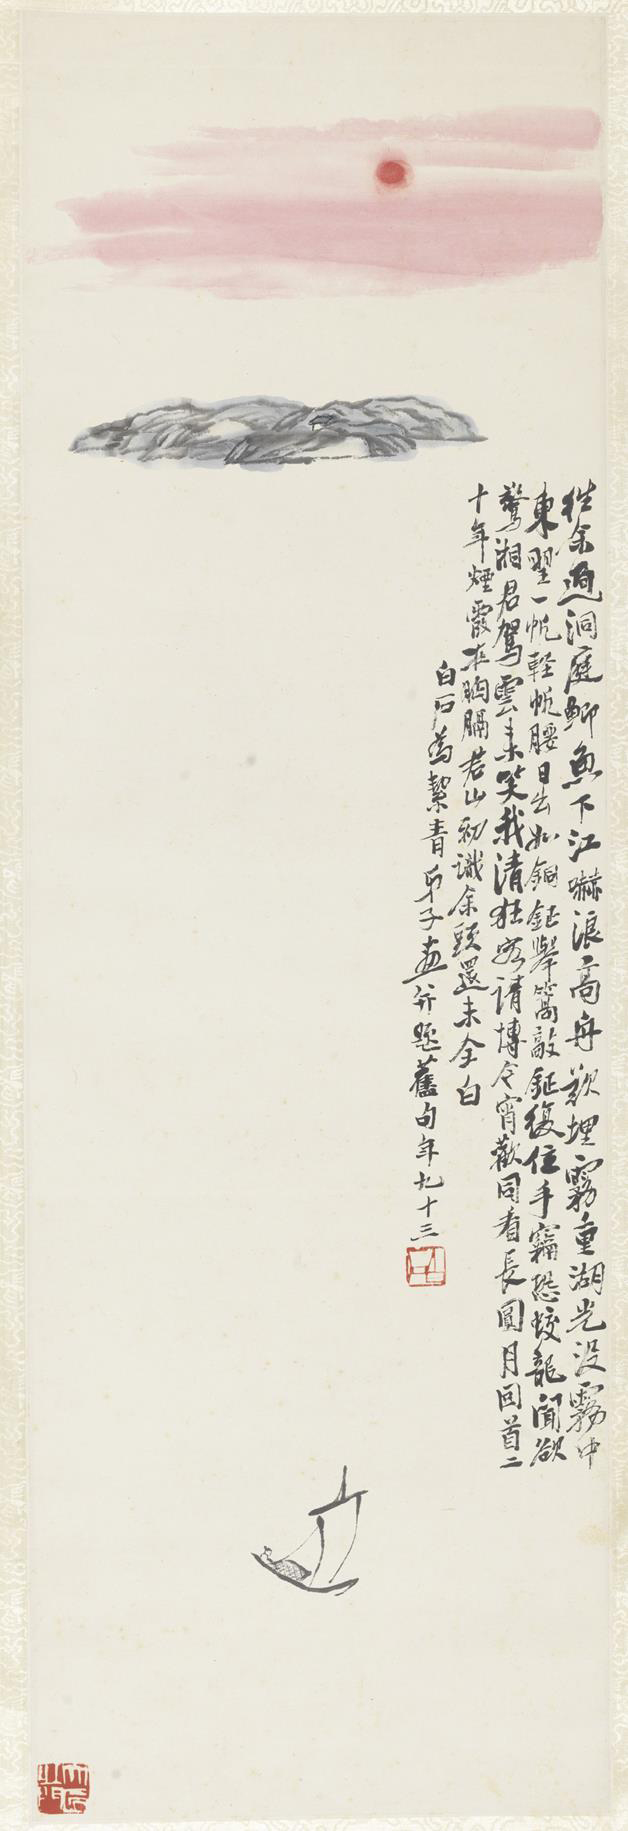 往余過洞庭鯽魚下江嚇浪高舟欵埋霧重湖光没霧中
東望一帆輕帆腰日出如銅鉦舉篙敲鉦復住手窃恐蛟龍聞欲
驚湘君駕雲來笑我清狂客請博今宵歡同看長圓月回首二
十年煙霞在胸膈君山初識余頭還未全白
白石為絜青弟子畫并題舊句年九十三